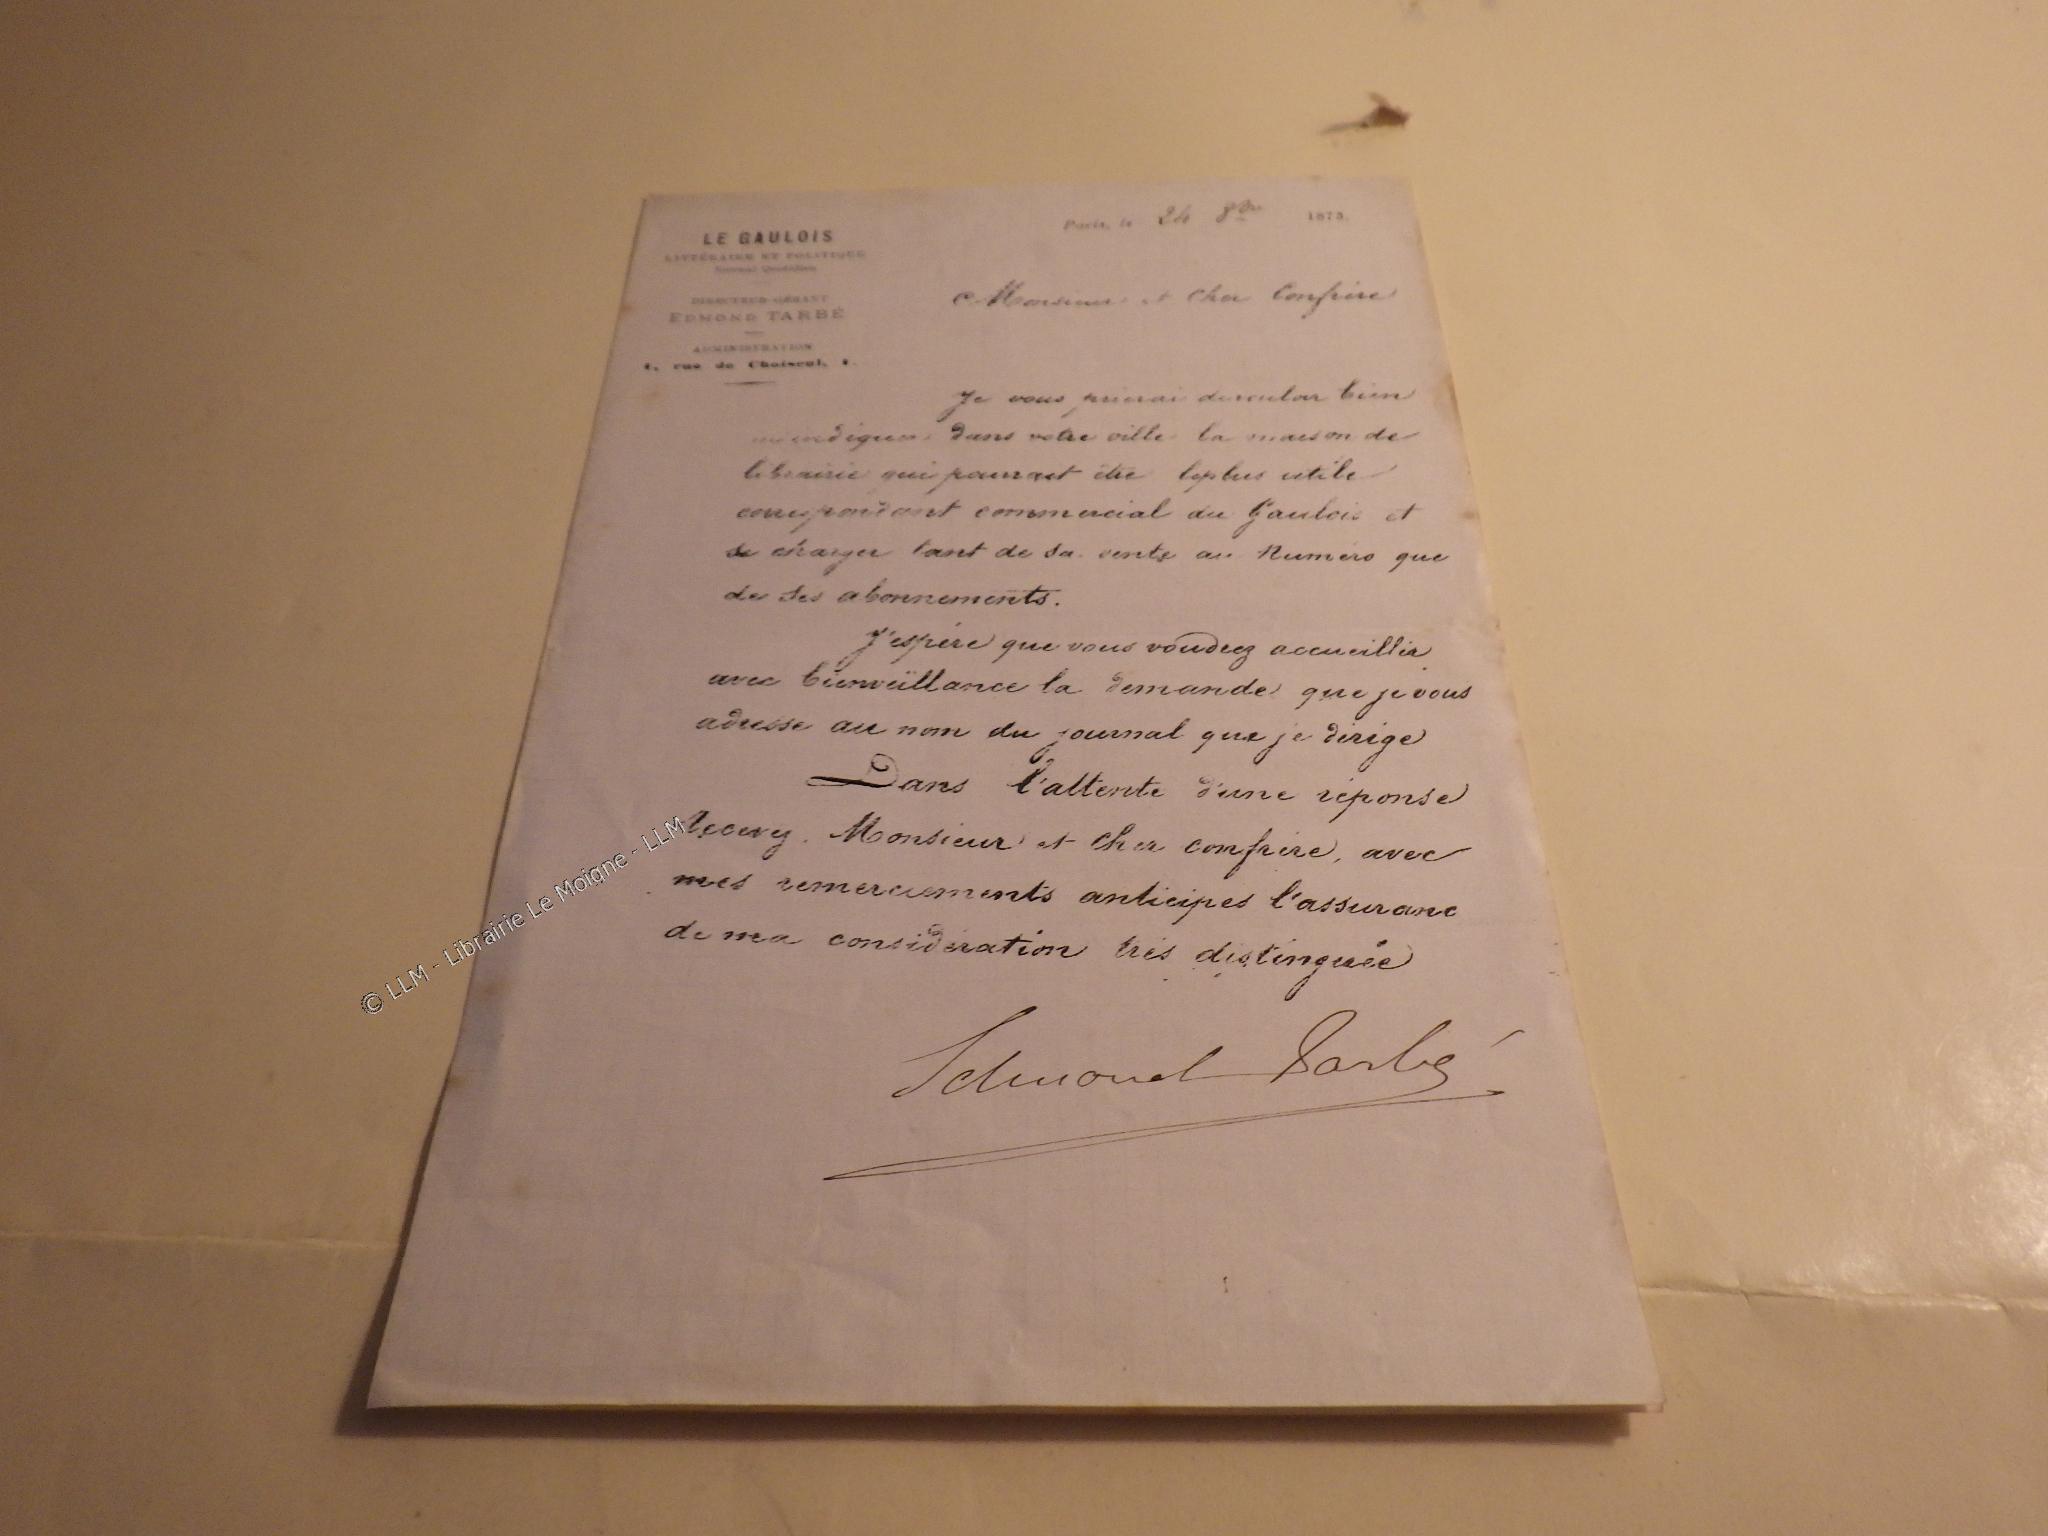 LE GAULOIS
LITTÉRAIRE ET POLITIQUE
Journal Quotidien
DIRECTEUR-GÉRANT
EDMOND TARBÉ
ADMINISTRATION
rue de Choiseul,
Paris, le 24 8bre 1873.
Monsieur et cher Confrère
Je vous prierai de vouloir bien
m'indiquer dans votre ville la maison de
librairie qui pourrait être le plus utile
correspondant commercial du Gaulois et
se charger tant de sa vente au Numéro que
de ses abonnements.
J'espère que vous voudrez accueillir
avec bienveillance la demande que je vous
adresse au nom du journal que je dirige
Dans l'attente d'une réponse
Recevez. Monsieur et cher confrère, avec
mes remerciements anticipés l'assuranc
de ma considération très distinguée
Edmond Tarbé
© LLM - Librairie Le Moigne - LLM